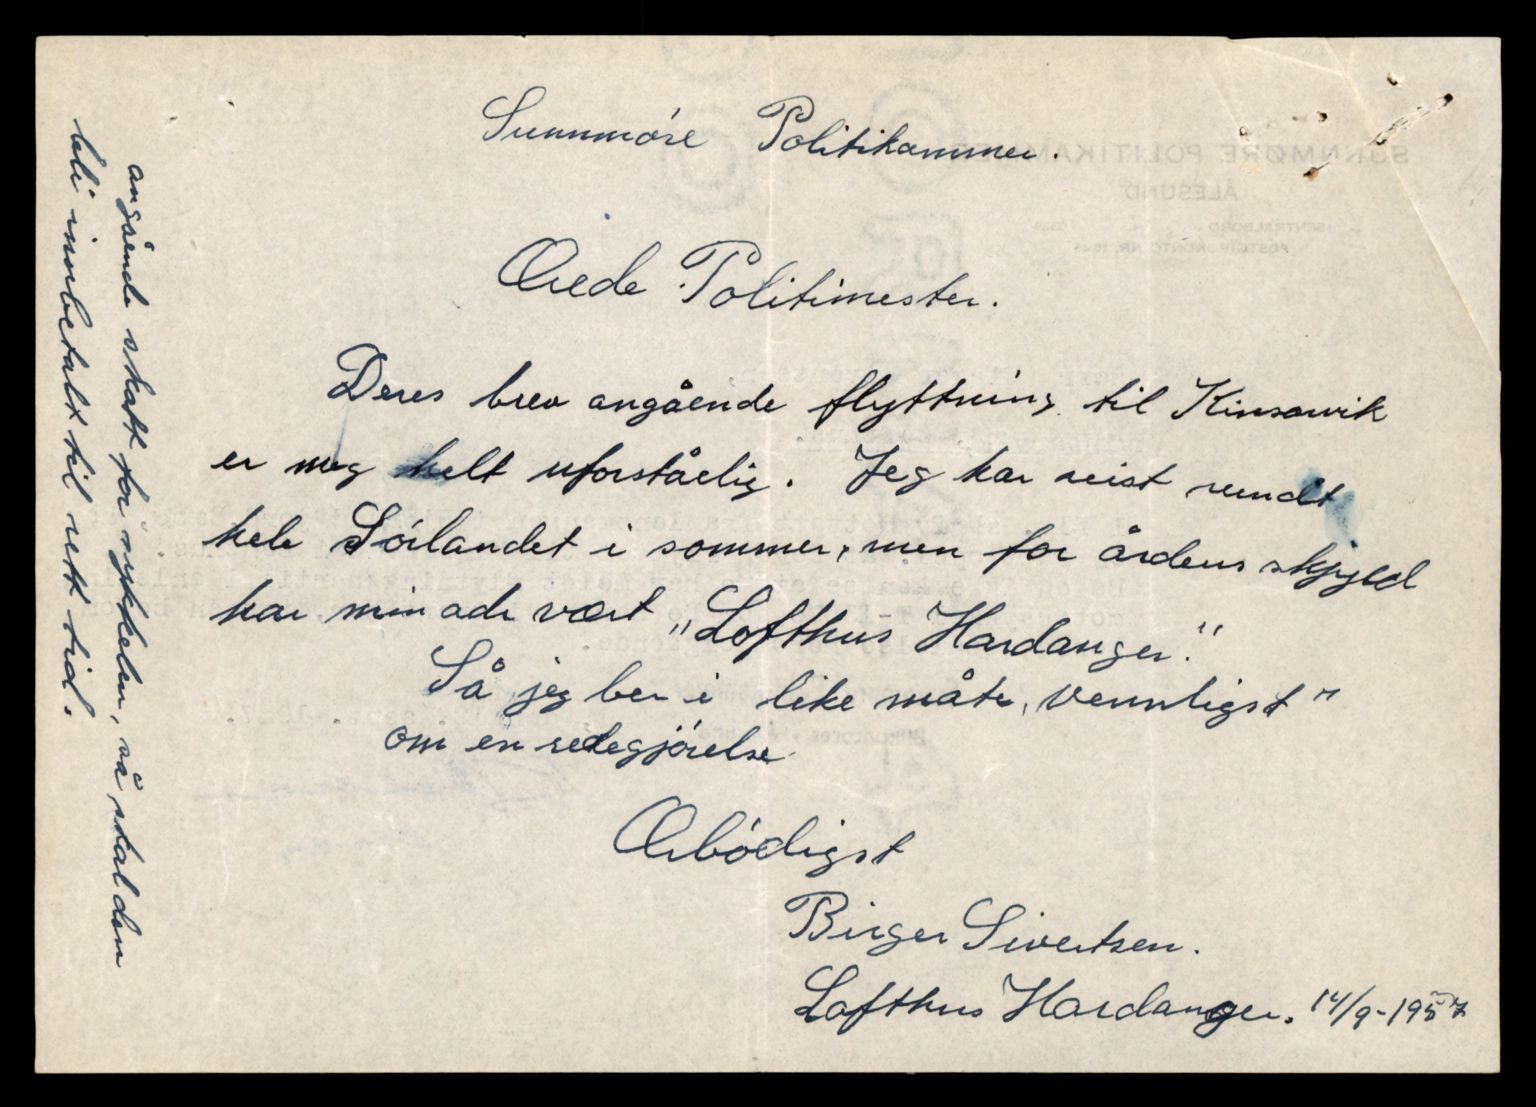 Sunnmøre Politikammer.
Ærede Politimester.
Deres brev angående flyttning til Kinsarvik
er meg helt uforståelig. Jeg har reist rundt
hele Sörlandet i sommer, men for årdens skjyld
har min adr vært „Lofthus Hardanger."
Så jeg ber i like måte „vennligst"
om en redegjörelse
Ærbödigst
Birger Sivertsen.
Lofthus Hardanger. 14/9-1957
angående skatt for sykkelen, så skal den
bli innbetalt til rett tid.
SUNNMØRE POLITIKAMMER
ÅLESUND